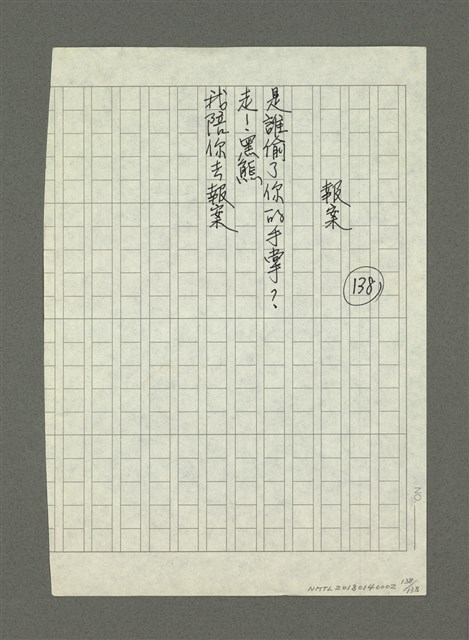 報案
138
是誰偷了你的手掌？
走！黑熊
我陪你去報案
NO.
NMTL20180140002
138/138